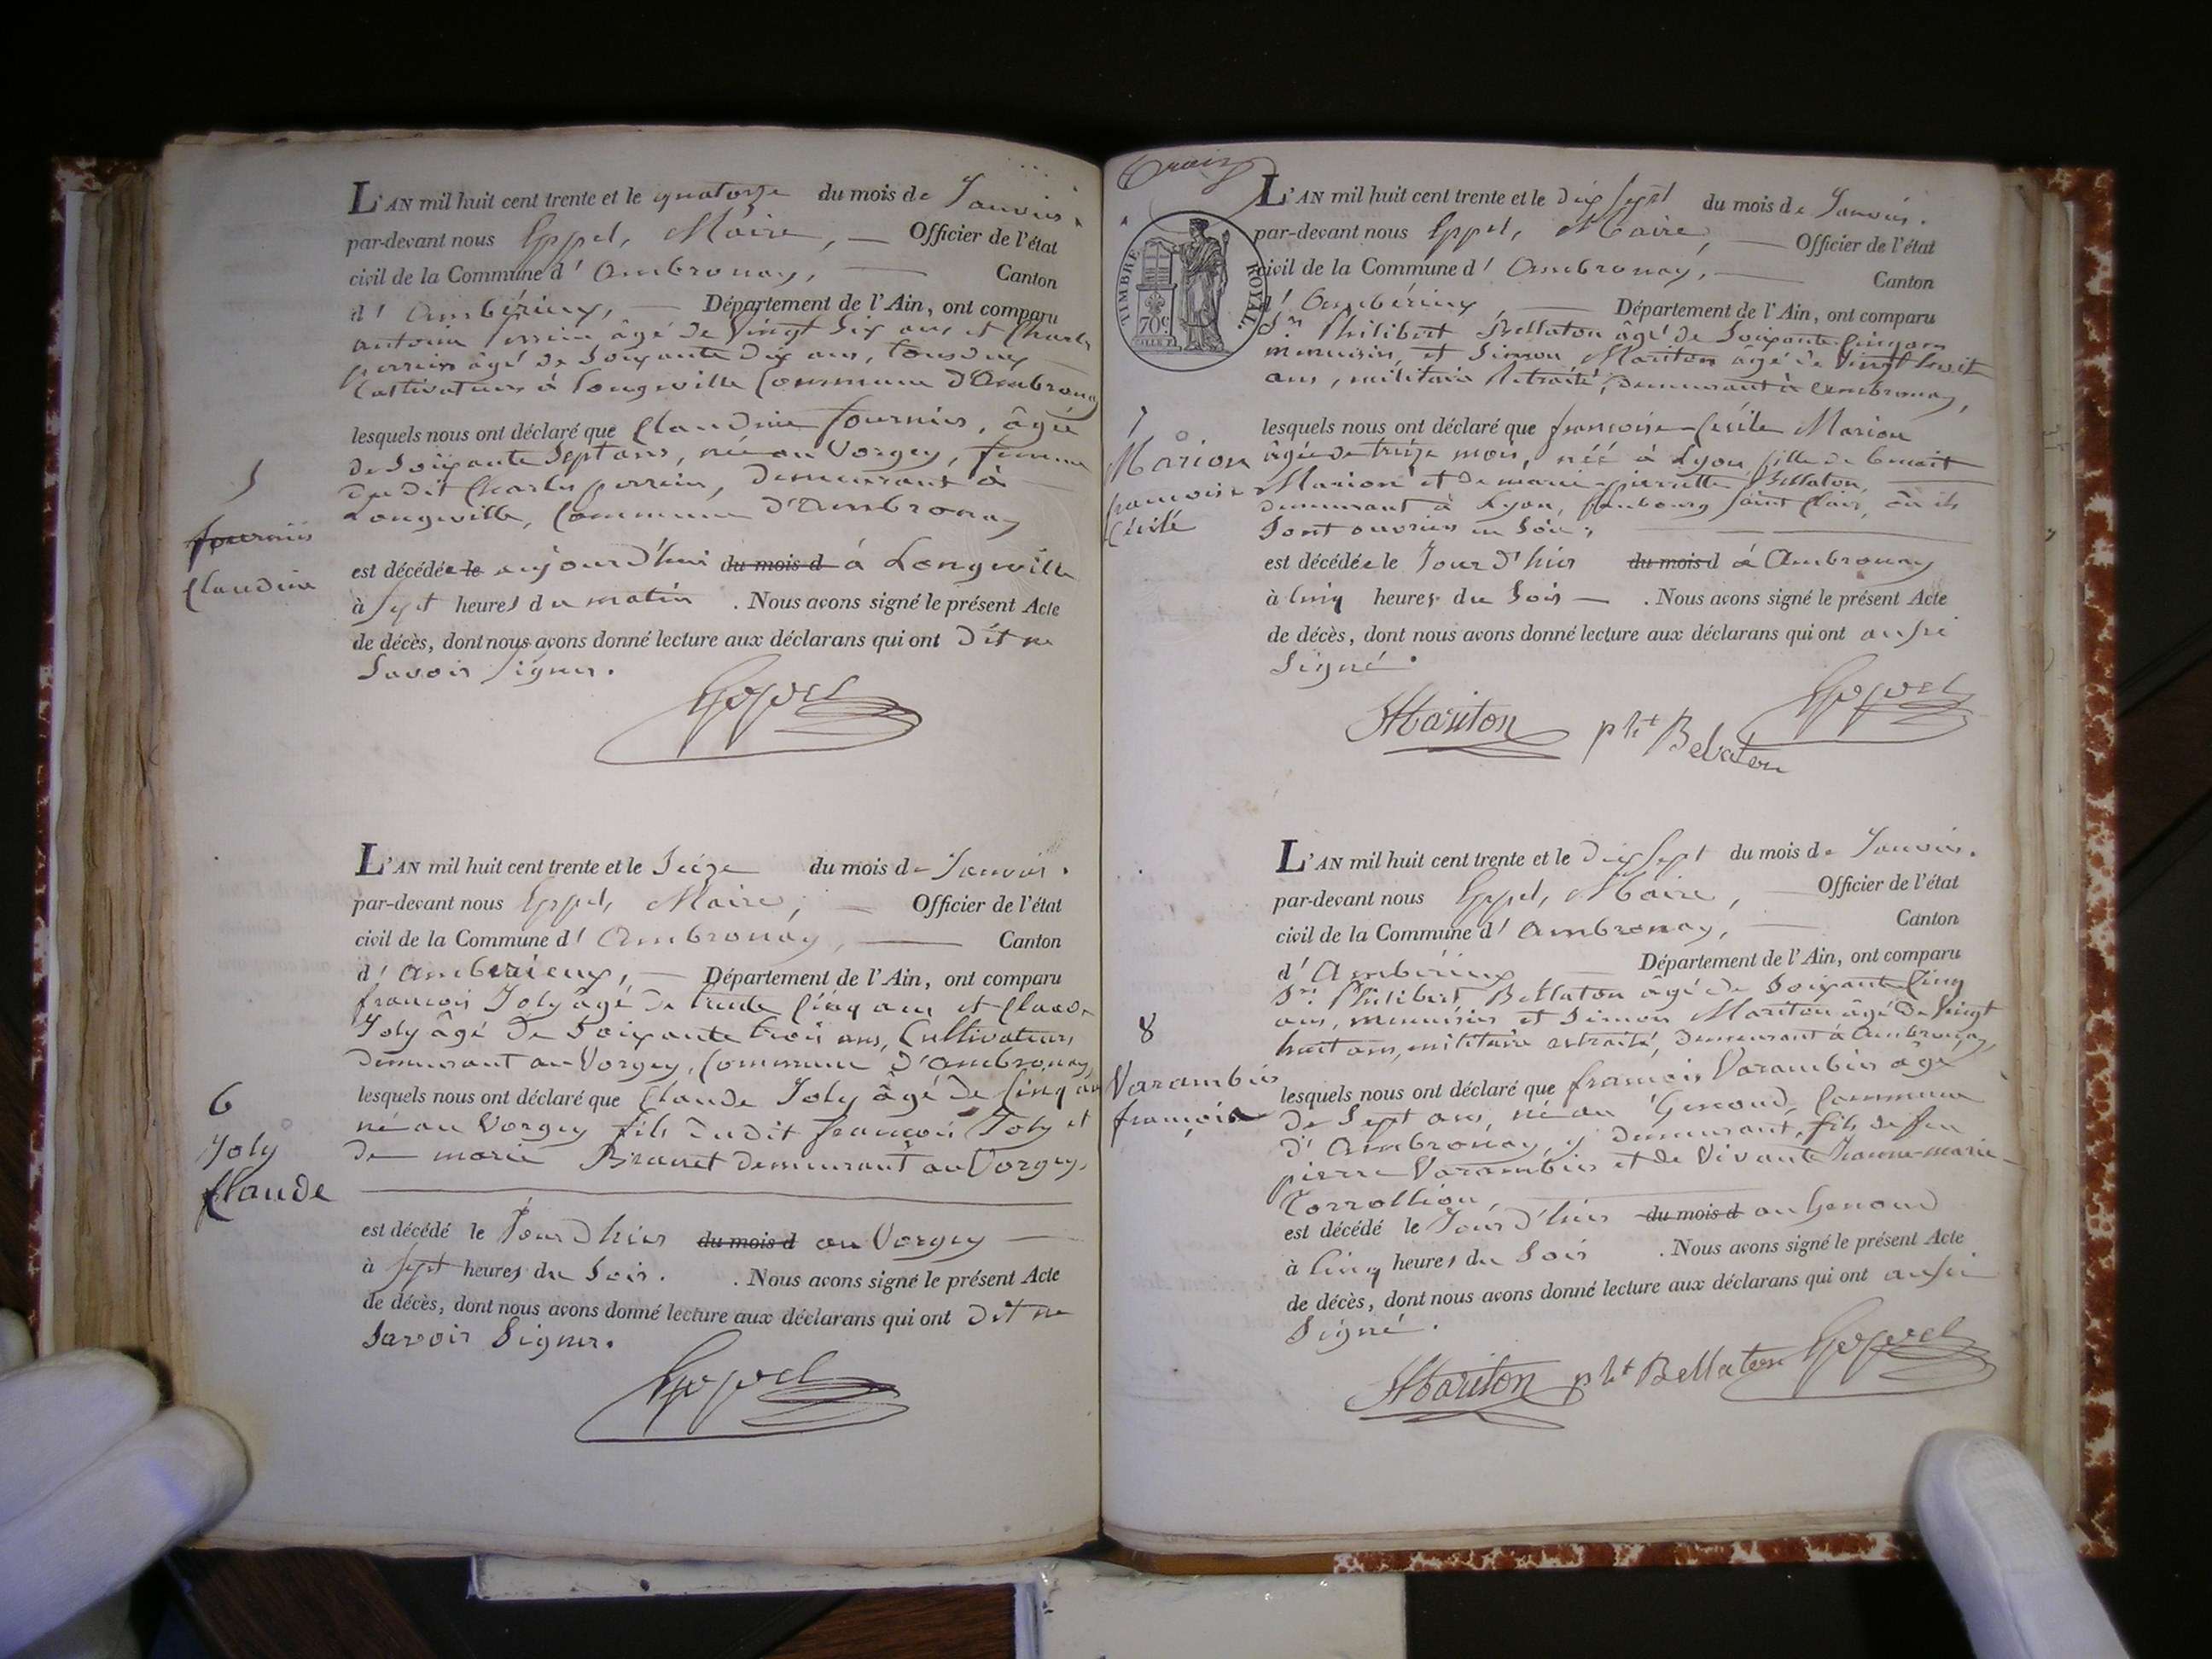 L'AN mil huit cent trente et le quatorze du mois de Janvier.
par-devant nous Eppel, Maire, — Officier de l'état
civil de la Commune d'Ambronay, — Canton
d'Ambérieux, — Département de l'Ain, ont comparu
antoine perrin âgé de vingt six ans et Charles
perrin âgé de Soixante Dix ans, tous deux
Cultivateurs à Longeville Commune D'Ambronay
lesquels nous ont déclaré que Claudine fournier, âgée
de Soixante Sept ans, née au Vorgey, femme
du dit Charles perrin, demeurant à
Longeville, Commune D'Ambronay
5
fournier
Claudine
est décédée le aujourd'hui du mois d à Longeville
à Sept heures du matin . Nous avons signé le présent Acte
de décès, dont nous avons donné lecture aux déclarans qui ont Dit ne
Savoir Signer.
Eppel
L'AN mil huit cent trente et le Seize du mois de Janvier.
par-devant nous Eppel, Maire, — Officier de l'état
civil de la Commune d'Ambronay, — Canton
d'Ambérieux, — Département de l'Ain, ont comparu
francois Joly âgé de trente Cinq ans et Claude
Joly âgé de Soixante trois ans, Cultivateurs
demeurant au Vorgey, Commune D'Ambronay,
lesquels nous ont déclaré que Claude Joly âgé de Cinq ans
né au Vorgey fils du dit francois Joly et
de marie demeurant au Vorgey,
6
Joly
Claude
est décédé le Jour D'hier du mois d au Vorgey —
à Sept heures du Soir. . Nous avons signé le présent Acte
de décès, dont nous avons donné lecture aux déclarans qui ont Dit ne
Savoir Signer.
Eppel
TIMBRE ROYAL.
70c
L'AN mil huit cent trente et le Dix Sept du mois de Janvier.
par-devant nous Eppel, Maire, — Officier de l'état
civil de la Commune d'Ambronay, — Canton
d'Ambérieux, — Département de l'Ain, ont comparu
Sr. Philibert Bellaton âgé de Soixante Cinq ans
menuisier, et Simon Mariton âgé de Vingt huit
ans, militaire retraité, demeurant à Ambronay,
lesquels nous ont déclaré que francoise-Cécile Marion
âgée de treize mois, née à Lyon fille de benoit
Marion et de marie-pierrette Bellaton,
demeurant à Lyon, faubourg Saint Clair, où ils
Sont ouvriers en Soie,
7
Marion
francoise
Cécile
est décédée le Jour D'hier du mois d à Ambronay
à Cinq heures du Soir — . Nous avons signé le présent Acte
de décès, dont nous avons donné lecture aux déclarans qui ont aussi
Signé.
SMariton pht Belaton Eppel
L'AN mil huit cent trente et le Dix Sept du mois de Janvier.
par-devant nous Eppel, Maire, — Officier de l'état
civil de la Commune d'Ambronay, — Canton
d'Ambérieux — Département de l'Ain, ont comparu
Sr. Philibert Bellaton âgé de Soixante Cinq
ans, menuisier et Simon Mariton âgé de Vingt
huit ans, militaire retraité, demeurant à Ambronay,
lesquels nous ont déclaré que francois Varambier âgé
de Sept ans, né au Genoud, Commune
d'Ambronay, y demeurant, fils de feu
pierre Varambier et de Vivante Jeanne-marie
8
Varambier
françois
est décédé le Jour D'hier du mois d au Genoud
à Cinq heures du Soir . Nous avons signé le présent Acte
de décès, dont nous avons donné lecture aux déclarans qui ont aussi
Signé.
SMariton pht Bellaton Eppel